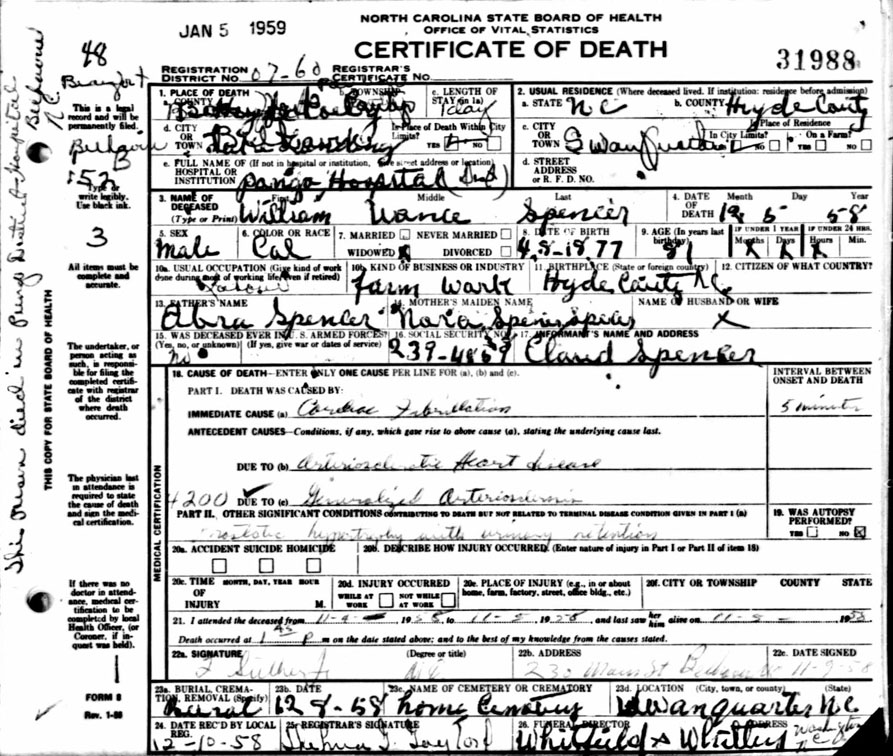 JAN 5 1959
NORTH CAROLINA STATE BOARD OF HEALTH
OFFICE OF VITAL STATISTICS
CERTIFICATE OF DEATH
31988
48
REGISTRATION DISTRICT NO. 07-60 REGISTRAR'S CERTIFICATE No.
This is a legal record and will be permanently filed.
Type or write legibly. Use black ink.
3
All items must be complete and accurate.
The undertaker, or person acting as such, is responsible for filing the completed certificate with registrar of the district where death occurred.
The physician last in attendance is required to state the cause of death and sign the medical certification.
If there was no doctor in attendance, medical certification to be completed by local Health Officer, (or Coroner, if inquest was held).
FORM 8
Rev. 1-58
THIS COPY FOR STATE BOARD OF HEALTH
1. PLACE OF DEATH
a. COUNTY b. TOWNSHIP c. LENGTH OF STAY (in 1a) 1 day
d. CITY OR TOWN Is Place of Death Within City Limits? YES NO
e. FULL NAME OF HOSPITAL OR INSTITUTION (If not in hospital or institution, give street address or location) Pungo Hospital
2. USUAL RESIDENCE (Where deceased lived. If institution: residence before admission)
a. STATE N C b. COUNTY Hyde County
c. CITY OR TOWN Swan Quarter Is Place of Residence In City Limits? YES NO On a Farm? YES NO
d. STREET ADDRESS OR R. F. D. NO.
3. NAME OF DECEASED (Type or Print) First Middle Last
William Vance Spencer
4. DATE OF DEATH Month Day Year 12 5 58
5. SEX Male
6. COLOR OR RACE Col
7. MARRIED NEVER MARRIED WIDOWED DIVORCED
8. DATE OF BIRTH 4-8-1877
9. AGE (In years last birthday) 81 IF UNDER 1 YEAR Months Days IF UNDER 24 HRS. Hours Min.
10a. USUAL OCCUPATION (Give kind of work done during most of working life, even if retired)
10b. KIND OF BUSINESS OR INDUSTRY Farm Work
11. BIRTHPLACE (State or foreign country) Hyde County N.C.
12. CITIZEN OF WHAT COUNTRY?
13. FATHER'S NAME Abra Spencer
14. MOTHER'S MAIDEN NAME Nora
NAME OF HUSBAND OR WIFE X
15. WAS DECEASED EVER IN U. S. ARMED FORCES? (Yes, no, or unknown) (If yes, give war or dates of service) no
16. SOCIAL SECURITY NO.
17. INFORMANT'S NAME AND ADDRESS Claud Spencer
MEDICAL CERTIFICATION
18. CAUSE OF DEATH—ENTER ONLY ONE CAUSE PER LINE FOR (a), (b) and (c). INTERVAL BETWEEN ONSET AND DEATH
PART I. DEATH WAS CAUSED BY:
IMMEDIATE CAUSE (a) Cardiac Fibrillation 5 minutes
ANTECEDENT CAUSES—Conditions, if any, which gave rise to above cause (a), stating the underlying cause last.
DUE TO (b) Arteriosclerotic Heart Disease
4200 DUE TO (c) Generalized Arteriosclerosis
PART II. OTHER SIGNIFICANT CONDITIONS CONTRIBUTING TO DEATH BUT NOT RELATED TO TERMINAL DISEASE CONDITION GIVEN IN PART I (a)
Prostatic hypertrophy with urinary retention
19. WAS AUTOPSY PERFORMED? YES NO X
20a. ACCIDENT SUICIDE HOMICIDE
20b. DESCRIBE HOW INJURY OCCURRED. (Enter nature of injury in Part I or Part II of item 18)
20c. TIME OF INJURY MONTH, DAY, YEAR HOUR M.
20d. INJURY OCCURRED WHILE AT WORK NOT WHILE AT WORK
20e. PLACE OF INJURY (e.g., in or about home, farm, factory, street, office bldg., etc.)
20f. CITY OR TOWNSHIP COUNTY STATE
21. I attended the deceased from 11-4- 1958, to 11-5, 1958, and last saw her him alive on 11-5- 1958
Death occurred at 1 P m on the date stated above; and to the best of my knowledge from the causes stated.
22a. SIGNATURE (Degree or title)
22b. ADDRESS 230 Main St
22c. DATE SIGNED 11-9-58
23a. BURIAL, CREMATION, REMOVAL (Specify) Burial
23b. DATE 12 8-58
23c. NAME OF CEMETERY OR CREMATORY Home Cemetery
23d. LOCATION (City, town, or county) (State) Swanquarter N.C.
24. DATE REC'D BY LOCAL REG. 12-10-58
25. REGISTRAR'S SIGNATURE
26. FUNERAL DIRECTOR ADDRESS Whitfield & Whitley Washington N.C.